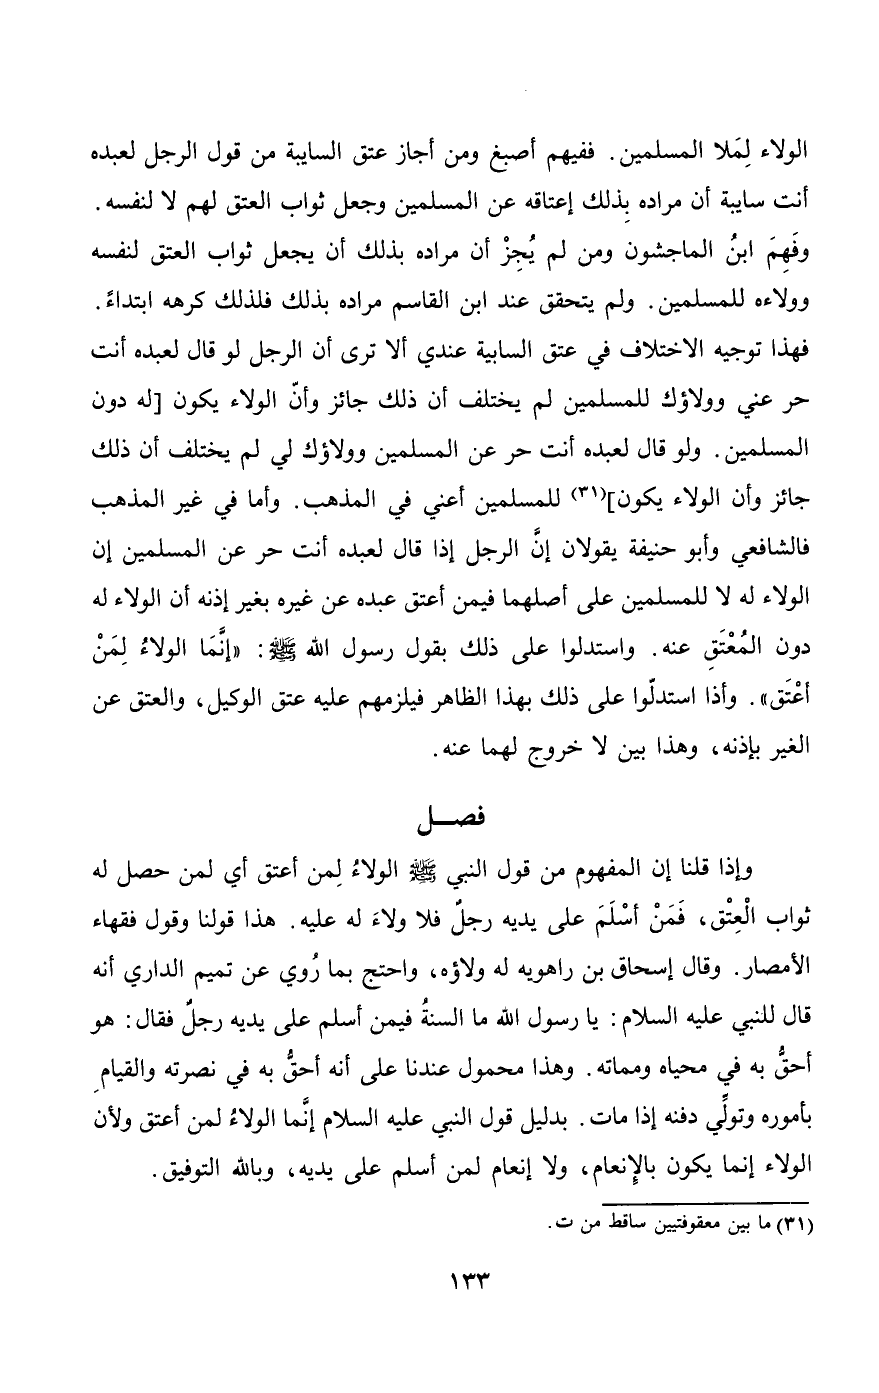 الولاء لِمَلا المسلمين. ففيهم أصبغ ومن أجاز عتق السايبة من قول الرجل لعبده
أنت سايبة أن مراده بِذلك إعتاقه عن المسلمين وجعل ثواب العتق لهم لا لنفسه.
وفَهِمَ ابنُ الماجشون ومن لم يُجِزْ أن مراده بذلك أن يجعل ثواب العتق لنفسه
وولاءه للمسلمين. ولم يتحقق عند ابن القاسم مراده بذلك فلذلك كرهه ابتداءً.
فهذا توجيه الاختلاف في عتق السايبة عندي ألا ترى أن الرجل لو قال لعبده أنت
حر عني وولاؤك للمسلمين لم يختلف أن ذلك جائز وأنّ الولاء يكون [له دون
المسلمين. ولو قال لعبده أنت حر عن المسلمين وولاؤك لي لم يختلف أن ذلك
جائز وأن الولاء يكون](٣١) للمسلمين أعني في المذهب. وأما في غير المذهب
فالشافعي وأبو حنيفة يقولان إنَّ الرجل إذا قال لعبده أنت حر عن المسلمين إن
الولاء له لا للمسلمين على أصلهما فيمن أعتق عبده عن غيره بغير إذنه أن الولاء له
دون المُعْتَقِ عنه. واستدلوا على ذلك بقول رسول الله ﷺ: «إنَّمَا الولاءُ لِمَنْ
أعْتَق». وأذا استدلّوا على ذلك بهذا الظاهر فيلزمهم عليه عتق الوكيل، والعتق عن
الغير بإذنه، وهذا بين لا خروج لهما عنه.
فصـــل
وإذا قلنا إن المفهوم من قول النبي ﷺ الولاءُ لِمن أعتق أي لمن حصل له
ثواب الْعِتْق، فَمَنْ أسْلَمَ على يديه رجلٌ فلا ولاءَ له عليه. هذا قولنا وقول فقهاء
الأمصار. وقال إسحاق بن راهويه له ولاؤه، واحتج بما رُوي عن تميم الداري أنه
قال للنبي عليه السلام: يا رسول الله ما السنةُ فيمن أسلم على يديه رجلٌ فقال: هو
أحقُّ به في محياه ومماته. وهذا محمول عندنا على أنه أحقُّ به في نصرته والقيامِ
بأموره وتولِّي دفنه إذا مات. بدليل قول النبي عليه السلام إنَّما الولاءُ لمن أعتق ولأن
الولاء إنما يكون بالإِنعام، ولا إنعام لمن أسلم على يديه، وبالله التوفيق.
(٣١) ما بين معقوفتيين ساقط من ت.
١٣٣